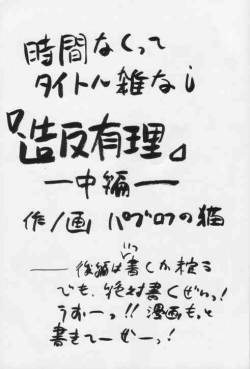 時間なくって
タイトル雑なし
『造反有理』
―中編―
作/画 パブロフの猫
いつ
――後編は書くか
でも、絶対書くぜいっ!
うおーっ!!漫画もっと
書きてーぞーっ!